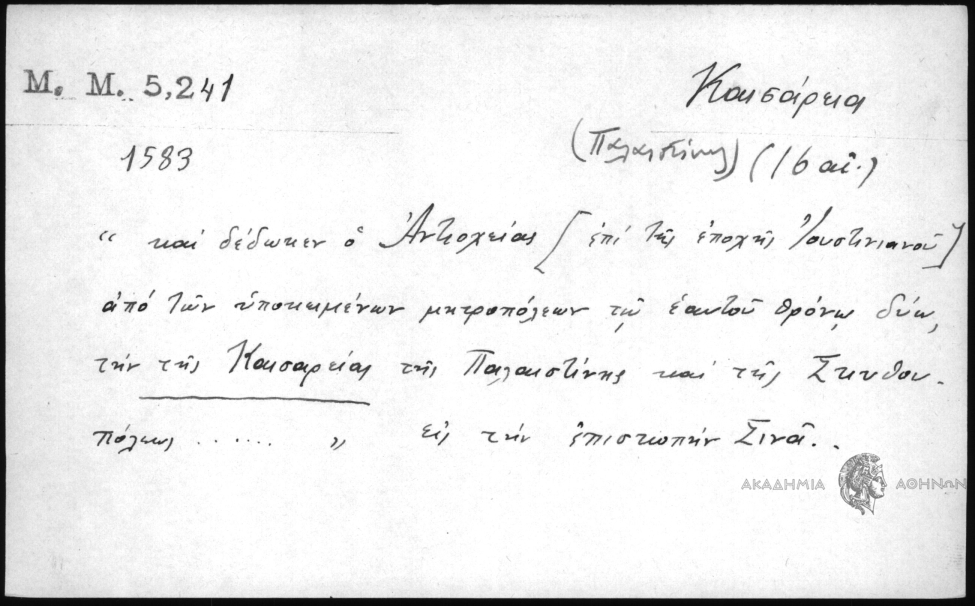 Μ. Μ. 5,241
Καισάρεια
1583
(Παλαιστίνης) (16 αἰ.)
“ καὶ δέδωκεν ὁ Ἀντιοχείας [ἐπὶ τῆς ἐποχῆς Ἰουστινιανοῦ]
ἀπό τῶν ὑποκειμένων μητροπόλεων τῷ ἑαυτοῦ θρόνῳ δύω,
τὴν τῆς Καισαρείας τῆς Παλαιστίνης καί τῆς Σκυθου-
πόλεως ........ „ εἰς τὴν ἐπισκοπὴν Σινᾶ..
ΑΚΑΔΗΜΙΑ ΑΘΗΝΩΝ